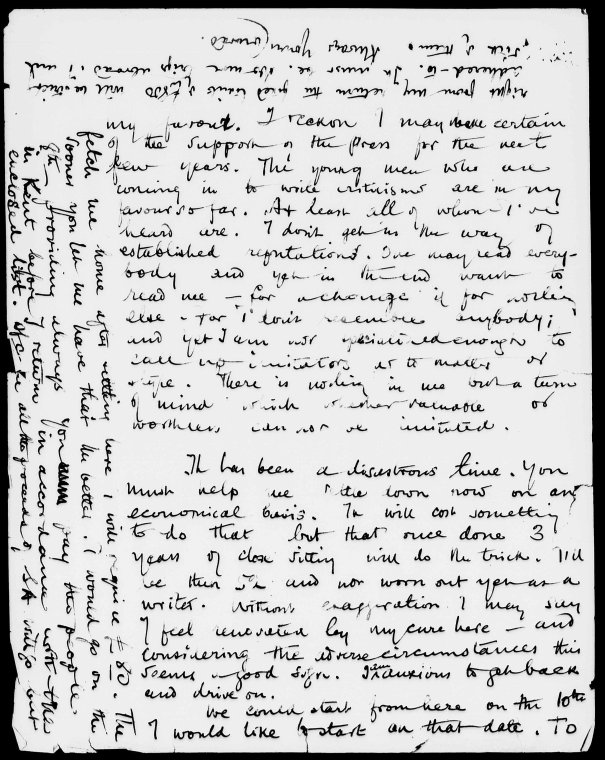 my favour. I reckon I may be certain
of the support of the Press for the next
few years. The young men who are
coming in to write criticisms are in my
favour so far. At least all of whom I've
heard are. I don't get in the way of
established reputations. One may read every-
body and yet in the end want to
read me — for a change if for nothing
else. For I don't resemble anybody;
and yet I am not specialised enough to
call up imitators as to matter or
style. There is nothing in me but a turn
of mind which whether valuable or
worthless can not be imitated.
It has been a disastrous time. You
must help me in the town now on an
economical basis. It will cost something
to do that but that once done 3
years of close sitting will do the trick. I'll
be then 52 and not worn out yet as a
writer. Without exaggeration I may say
I feel renovated by my cure here — and
considering the adverse circumstances this
seems a good sign. I am anxious to get back
and drive on.
We could start from here on the 10th
I would like to start on that date. To
fetch me home after settling here I will require £80. The
sooner you let me have that the better. I would go on the
providing always you pay the people
in Kent before I return in accordance with the
enclosed list. all the proceeds of S.A. will go out
right from my return the good limit of £600 will be strictly
adhered to. It must be. No more trips abroad. I am
sick of them. Always Yours Conrad.